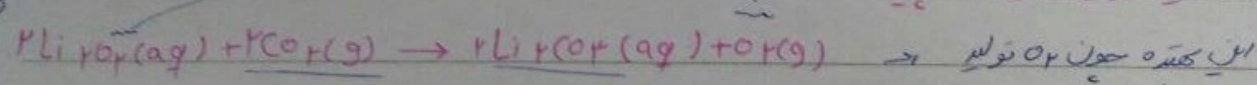 ۲Li۲O۲(aq) + ۲CO۲(g) → ۲Li۲CO۳(aq) + O۲(g) → این بهتره چون O۲ تولید